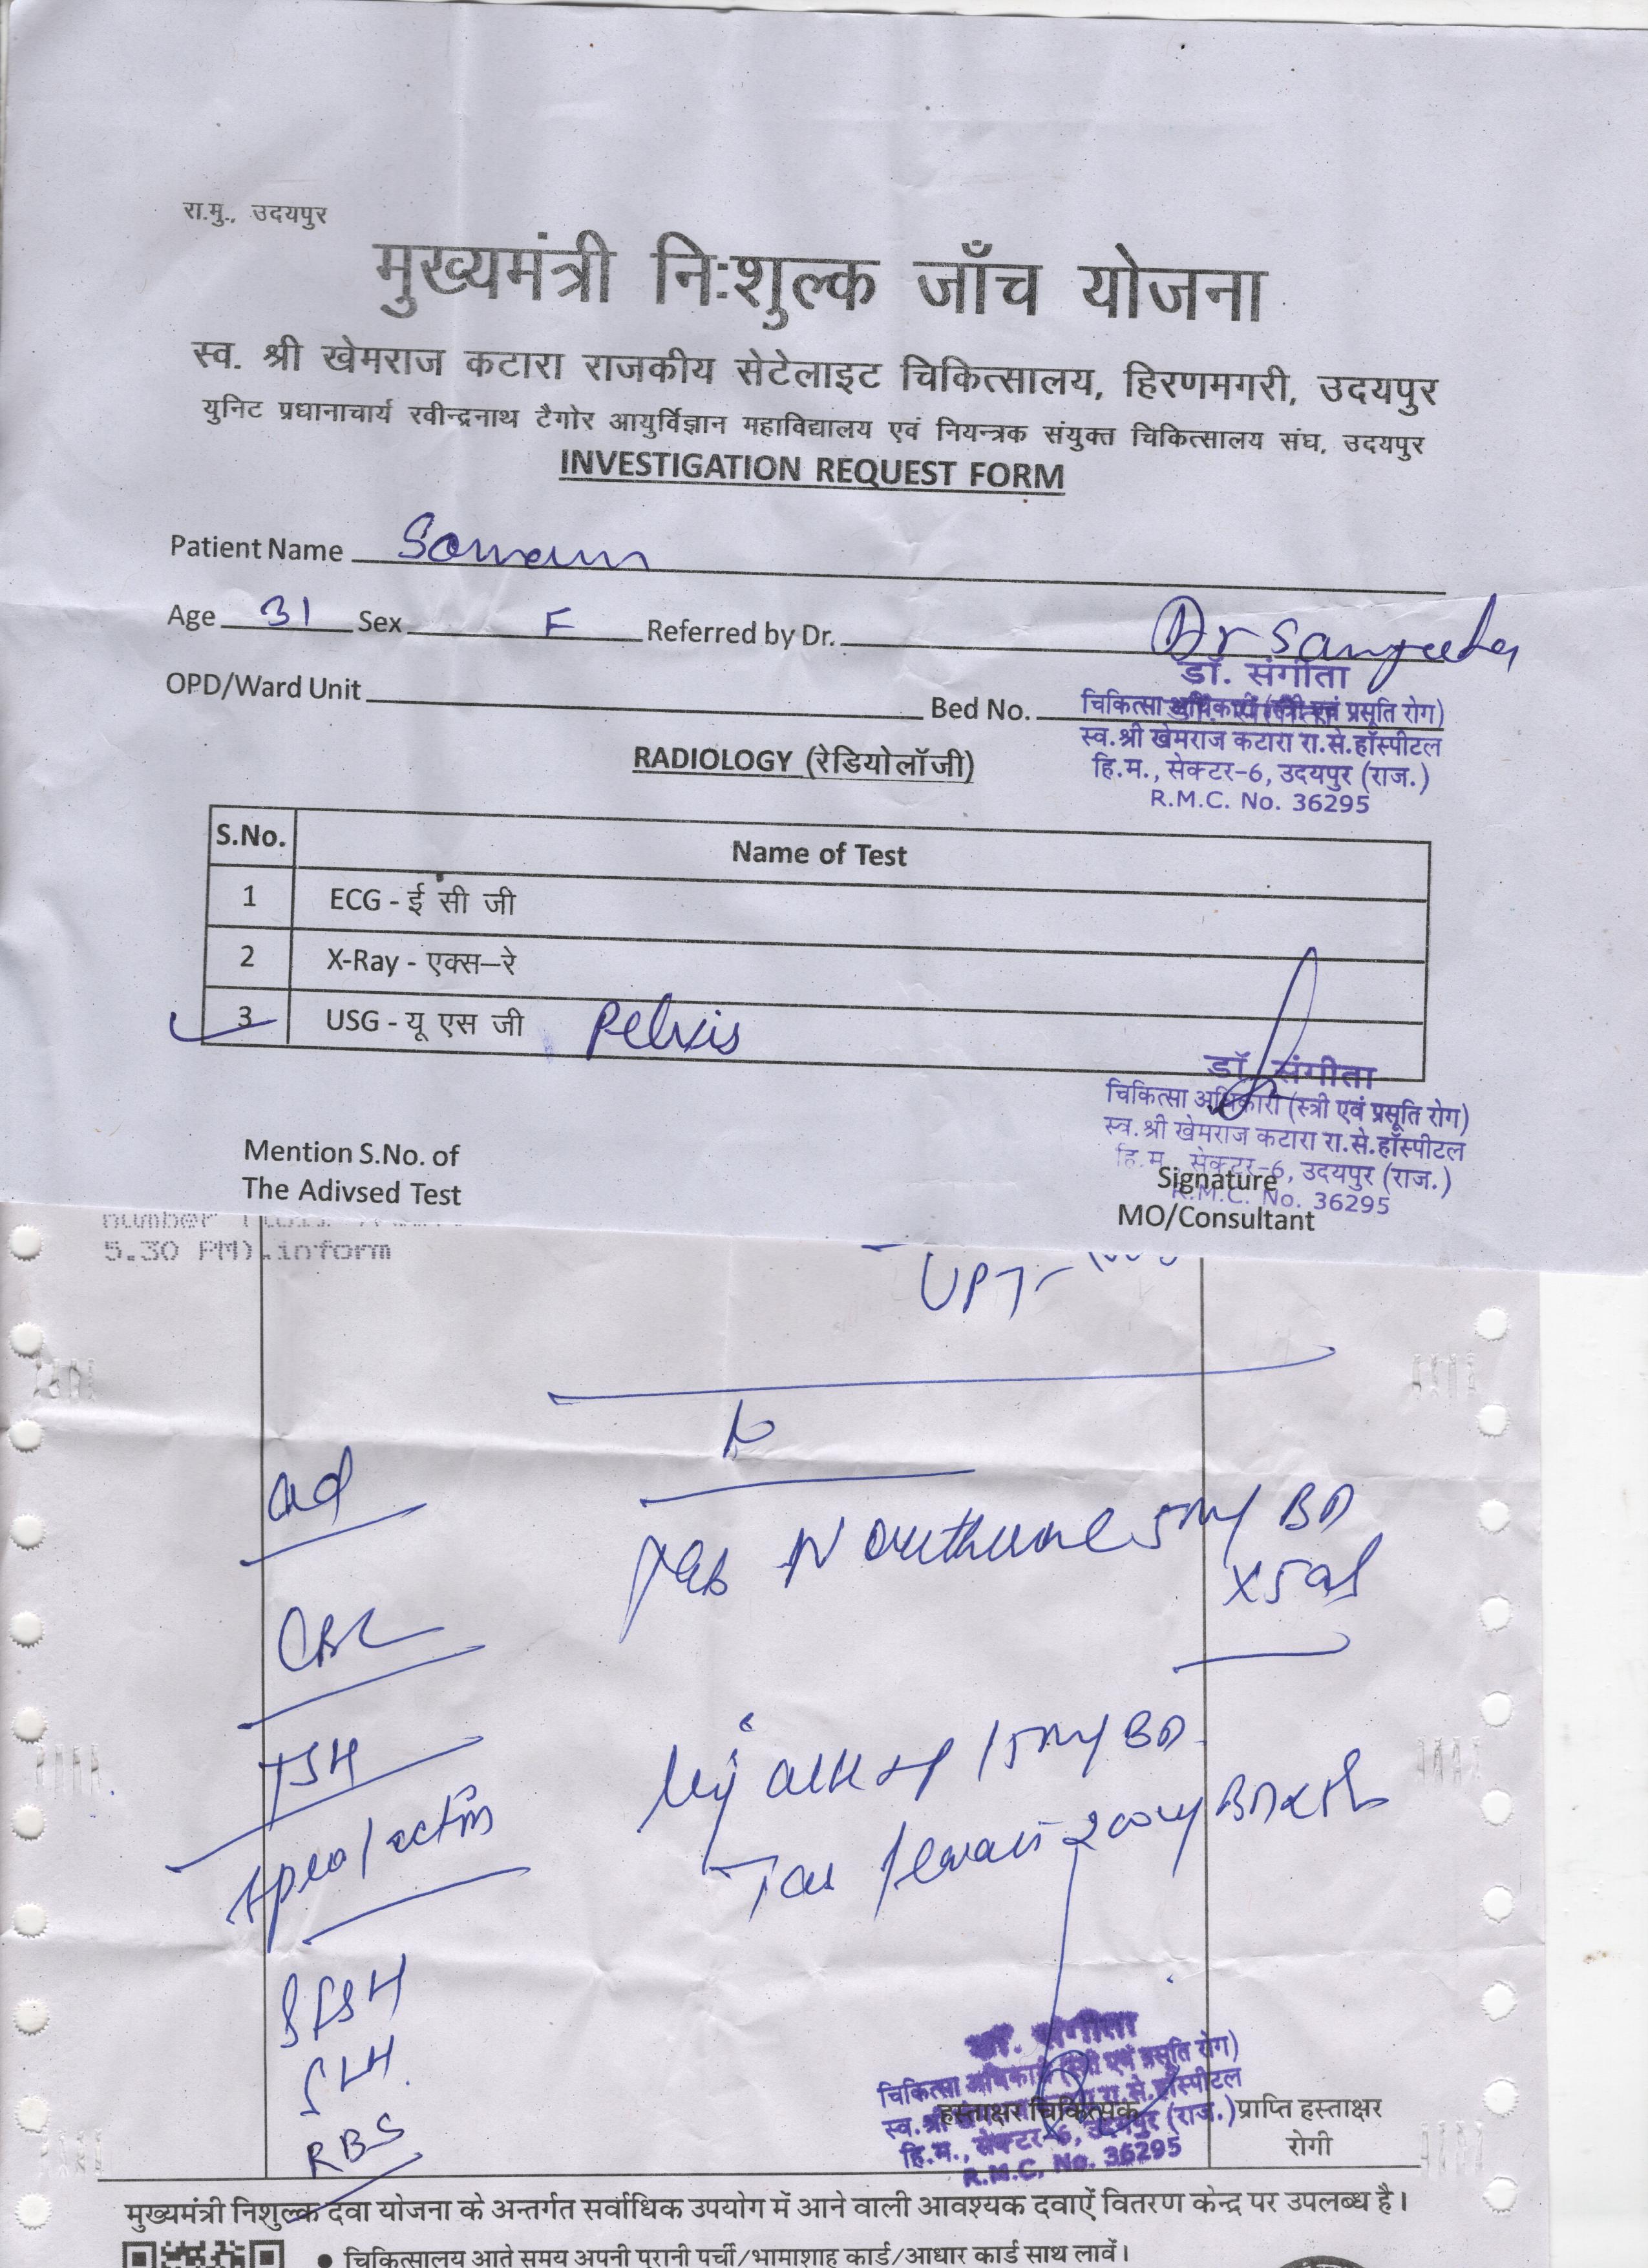 रा.मु., उदयपुर
मुख्यमंत्री निःशुल्क जाँच योजना
स्व. श्री खेमराज कटारा राजकीय सेटेलाइट चिकित्सालय, हिरणमगरी, उदयपुर
युनिट प्रधानाचार्य रवीन्द्रनाथ टैगोर आयुर्विज्ञान महाविद्यालय एवं नियन्त्रक संयुक्त चिकित्सालय संघ, उदयपुर
INVESTIGATION REQUEST FORM
Patient Name
Age 31 Sex F Referred by Dr. Dr Sangeeta
डॉ. संगीता
OPD/Ward Unit Bed No.
चिकित्सा अधिकारी (स्त्री एवं प्रसूति रोग)
स्व.श्री खेमराज कटारा रा.से.हॉस्पीटल
हि.म., सेक्टर-6, उदयपुर (राज.)
R.M.C. No. 36295
RADIOLOGY (रेडियोलॉजी)
S.No. Name of Test
1 ECG - ई सी जी
2 X-Ray - एक्स–रे
3 USG - यू एस जी Pelvis
डॉ. संगीता
चिकित्सा अधिकारी (स्त्री एवं प्रसूति रोग)
स्व.श्री खेमराज कटारा रा.से.हॉस्पीटल
हि.म., सेक्टर-6, उदयपुर (राज.)
R.M.C. No. 36295
Mention S.No. of
The Adivsed Test
Signature
MO/Consultant
number
5.30 PM).inform
UPT-
Tab 5mg BD
x5d
CBC
TSH
15mg BD
prolactin
200mg BD
SFSH
SLH
RBS
डॉ. संगीता
चिकित्सा अधिकारी (स्त्री एवं प्रसूति रोग)
स्व.श्री रा.से.हॉस्पीटल
हि.म., सेक्टर-6, उदयपुर (राज.)
R.M.C. No. 36295
हस्ताक्षर चिकित्सक
प्राप्ति हस्ताक्षर
रोगी
मुख्यमंत्री निशुल्क दवा योजना के अन्तर्गत सर्वाधिक उपयोग में आने वाली आवश्यक दवाऐं वितरण केन्द्र पर उपलब्ध है।
● चिकित्सालय आते समय अपनी पुरानी पर्ची/भामाशाह कार्ड/आधार कार्ड साथ लावें।